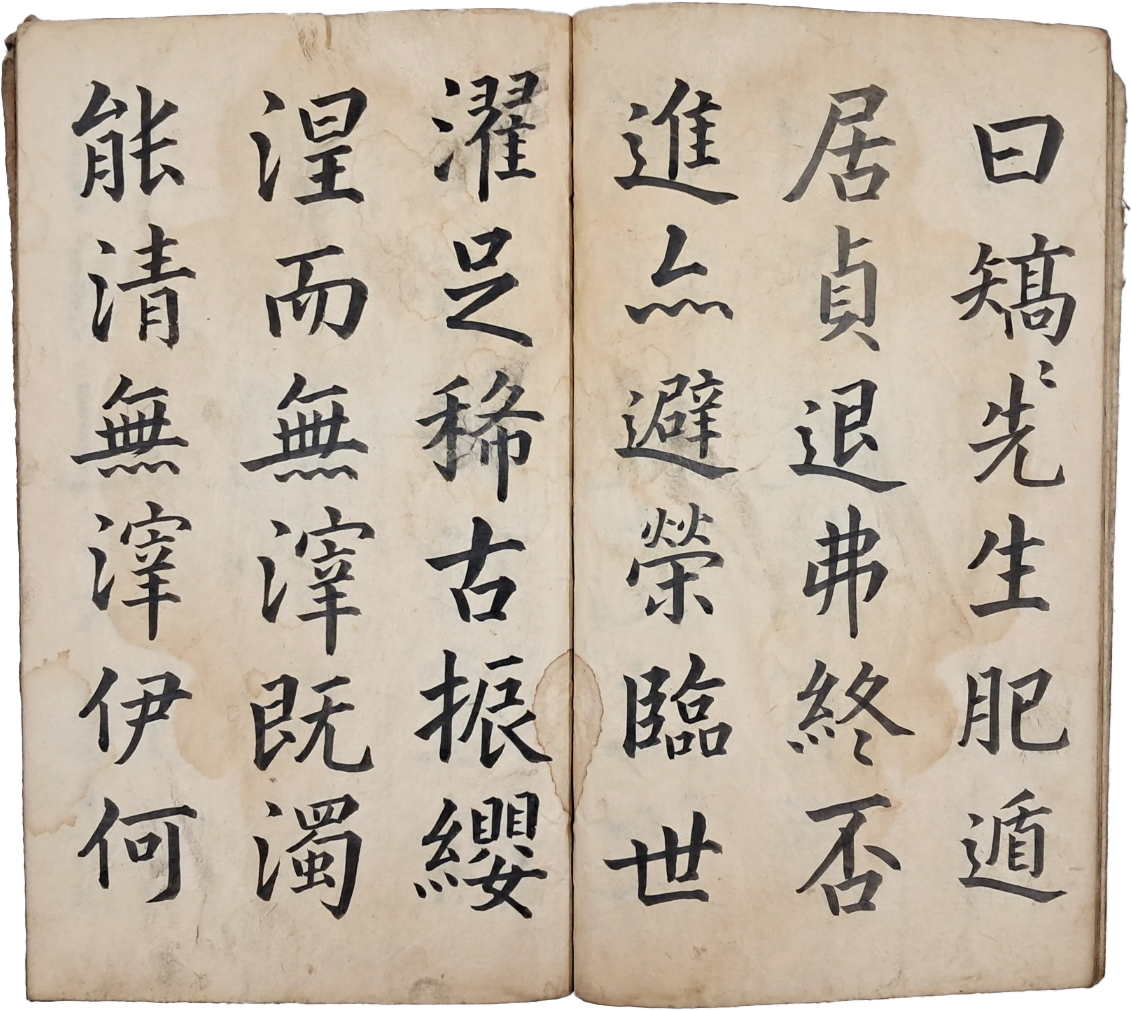 曰矯〻先生肥遁
居貞退弗終否
進亦避榮臨世
濯足稀古振纓
涅而無滓既濁
能清無滓伊何